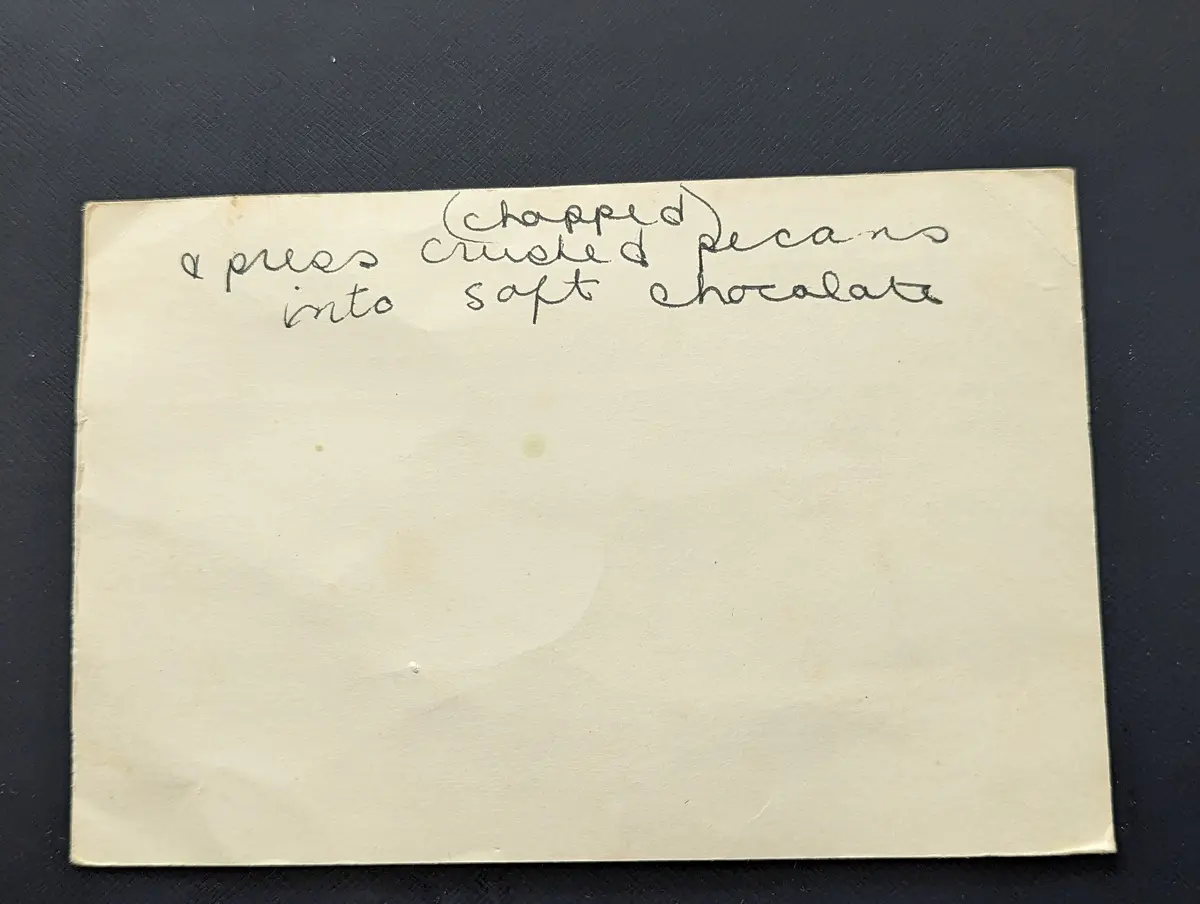 (chopped)
& press crushed pecans
into soft chocolate